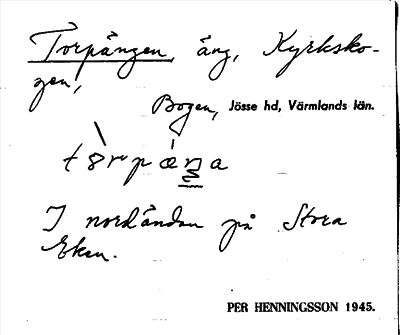 Torpängen, äng, Kyrksko-
gen,
Bogen, Jösse hd, Värmlands län.
I nordändan på Stora
Eken.
PER HENNINGSSON 1945.